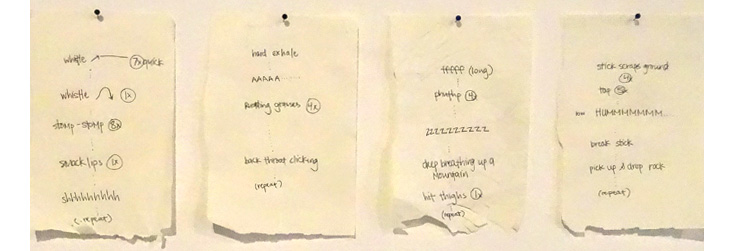 whistle 7x quick
whistle 1x
stomp-stomp 8x
smack lips 1x
shhhhhhhhh
(repeat)
hard exhale
AAAAA
grasses 4x
back throat clicking
(repeat)
fffff (long)
4x
ZZZZZZZZZ
deep breathing up a
mountain
hit thighs 1x
(repeat)
stick scrapes ground
4x
tap
HUMMMMMMM...
break stick
pick up & drop rock
(repeat)